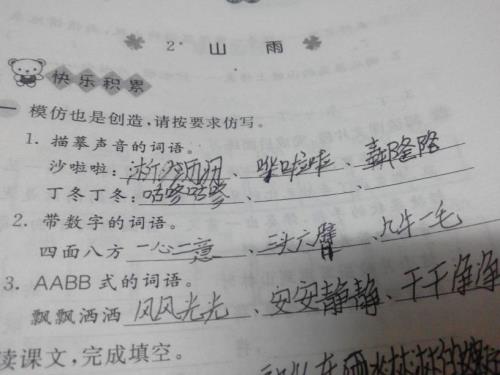 2 山 雨
快乐积累
一 模仿也是创造,请按要求仿写。
1. 描摹声音的词语。
沙啦啦: 、哗啦啦、轰隆隆
丁冬丁冬:咕咚咕咚、 、
2. 带数字的词语。
四面八方 一心二意、三头六臂、九牛一毛
3. AABB 式的词语。
飘飘洒洒 风风光光、安安静静、干干净净
读课文,完成填空。